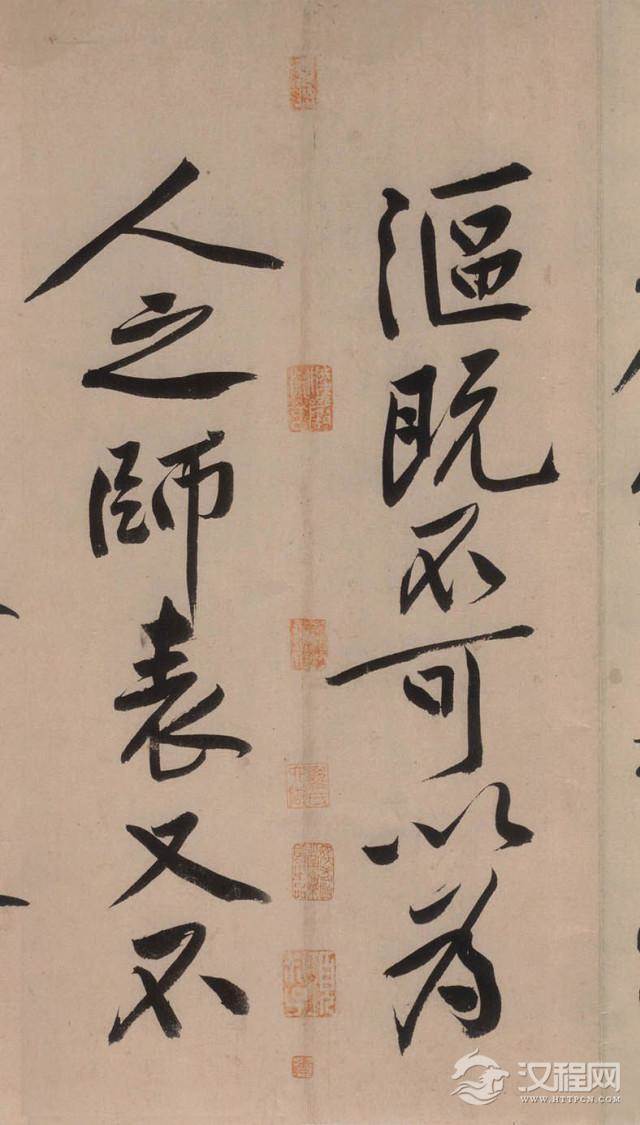 漚既不可以為
人之師表又不
汉程网
WWW.HTTPCN.COM